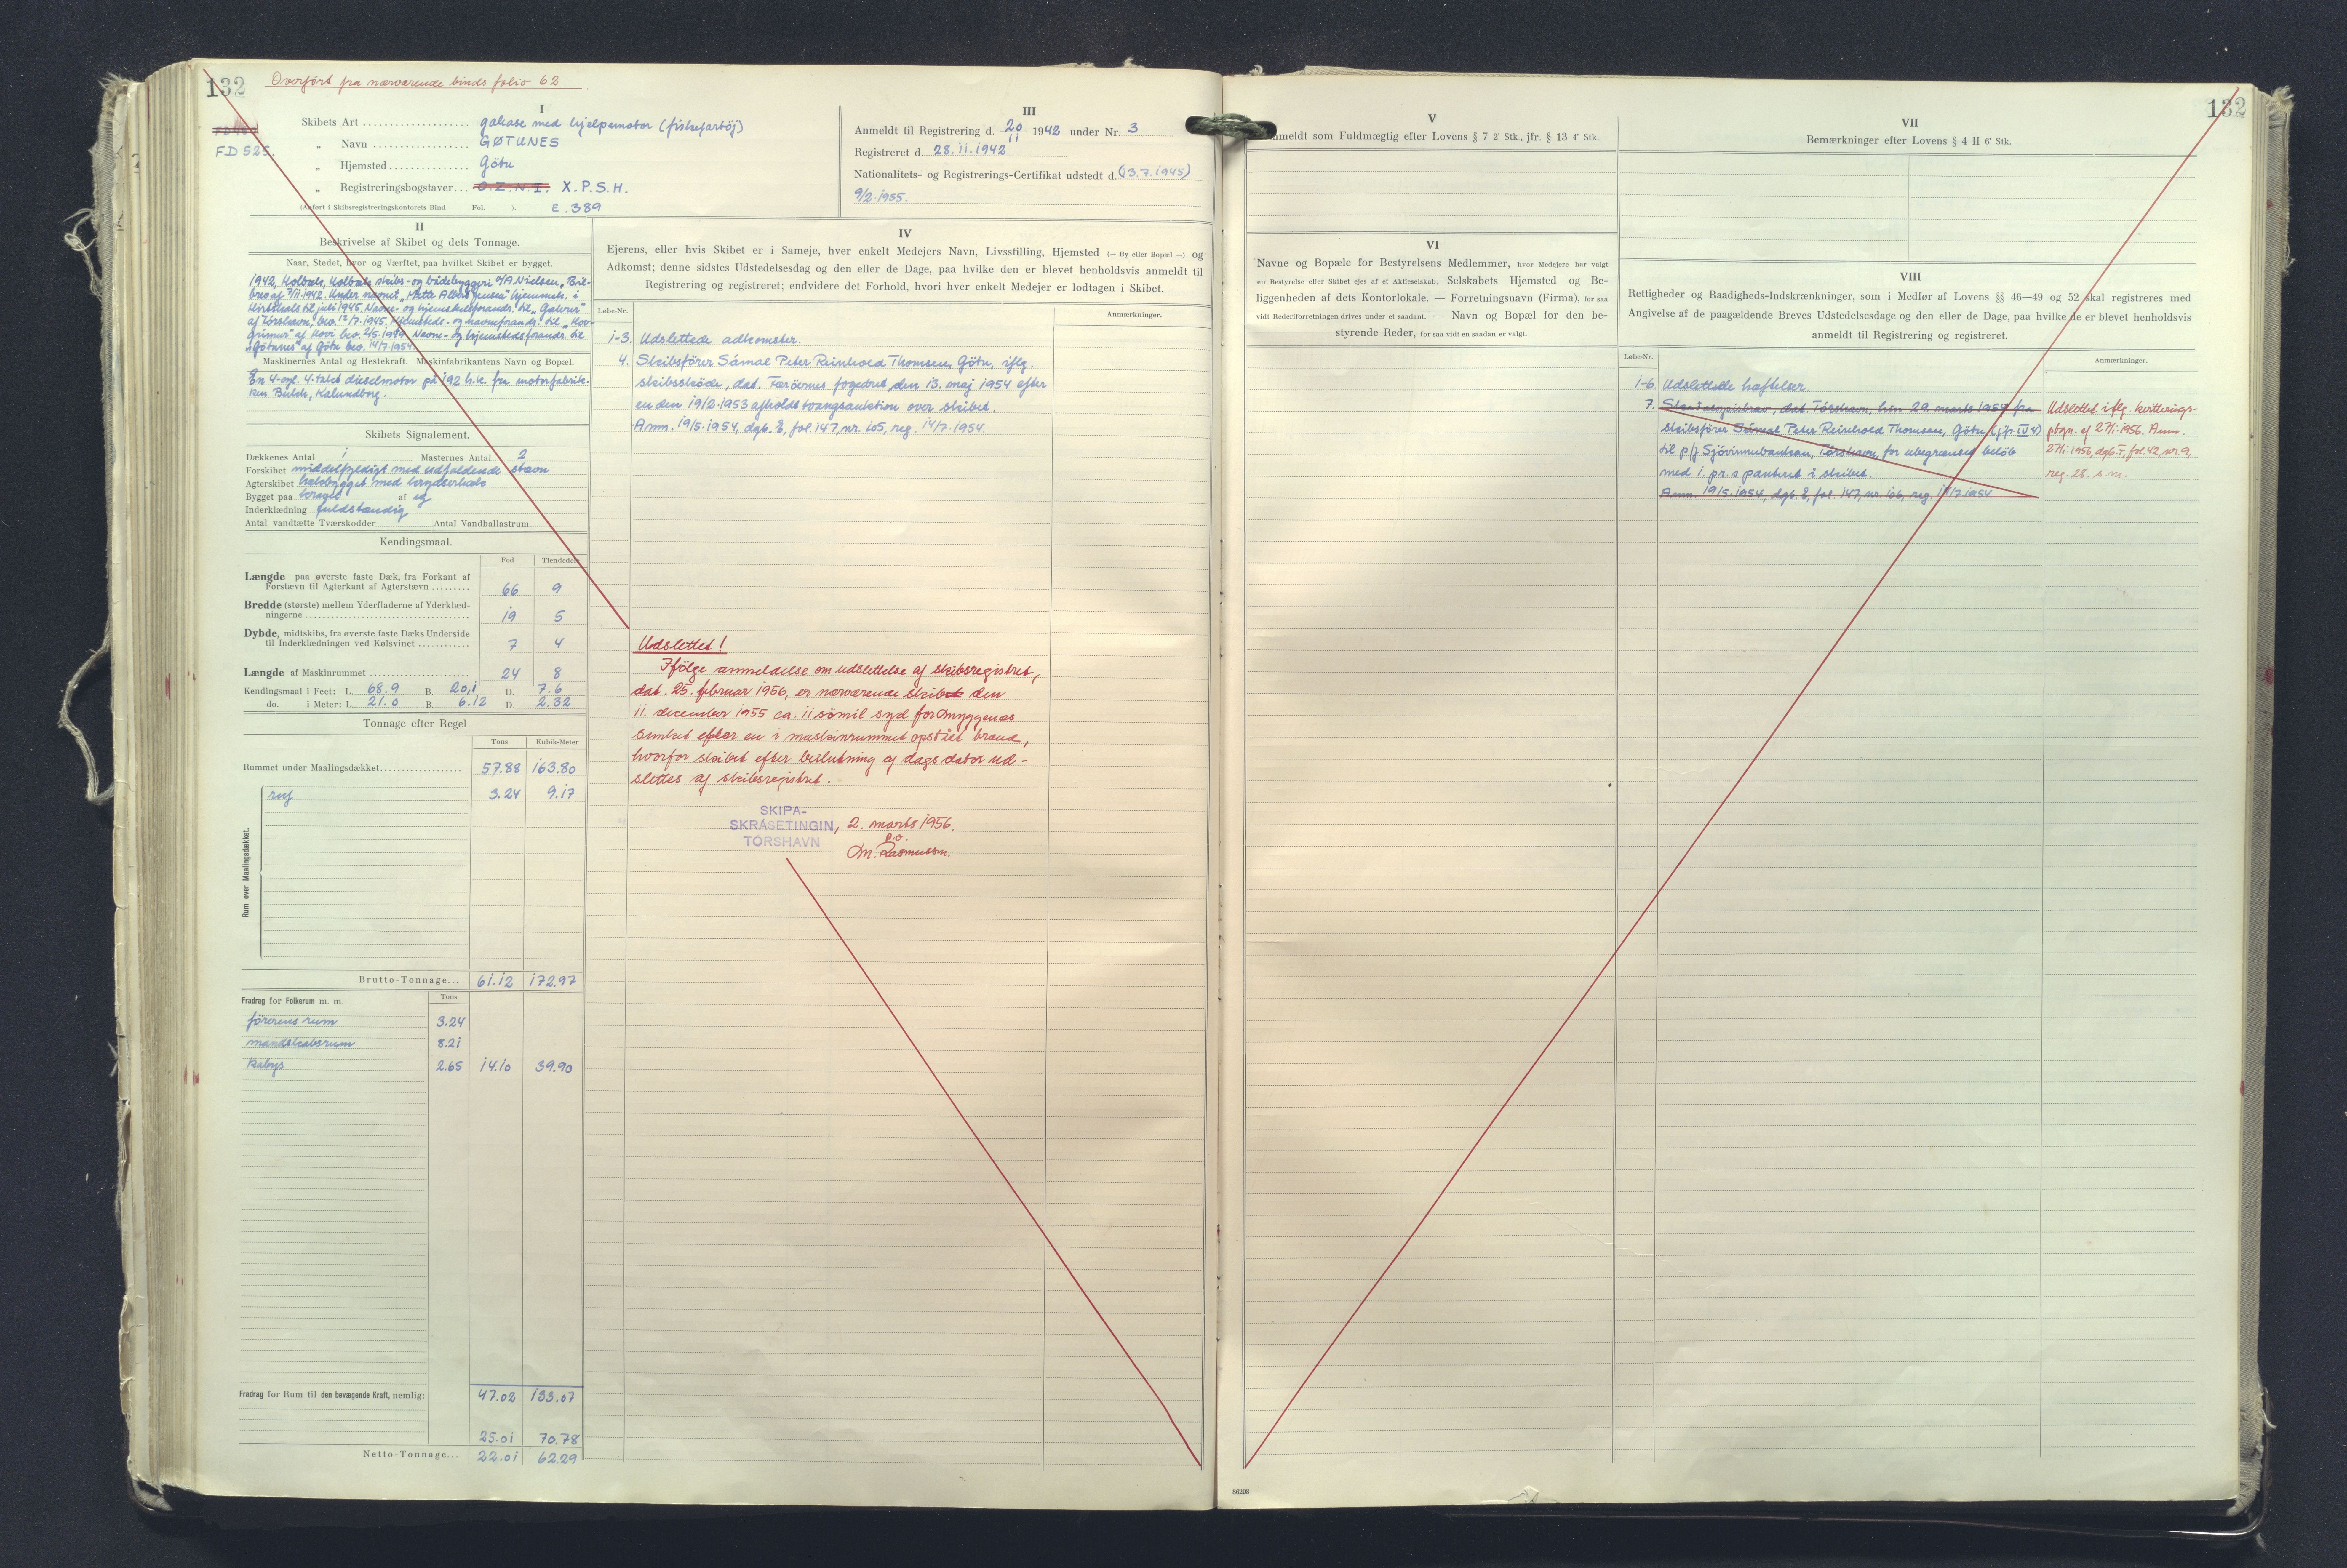 132
Overført fra nærværende binds folio 62
FD 525.
I
Skibets Art .................... galease med hjelpemotor (fiskefartöj)
„ Navn .................. GØTUNES
„ Hjemsted ............... Götu
„ Registreringsbogstaver... O.Z.N.I. X.P.S.H.
(Anført i Skibsregistreringskontorets Bind Fol. ). E. 389
III
Anmeldt til Registrering d. 20/11 1942 under Nr. 3
Registreret d. 28.11.1942
Nationalitets- og Registrerings-Certifikat udstedt d. (13.7.1945)
9/2.1955.
II
Beskrivelse af Skibet og dets Tonnage.
Naar, Stedet, hvor og Værftet, paa hvilket Skibet er bygget.
1942, Holbæk, Holbæk skibs- og bådebyggeri v/A Nielsen, Bil-
brev af 7/11.1942. Under navnet „Mette Albert Jensen" hjemmeh. i
Hirtshals til juli 1945. Navne- og hjemstedsforandr. til „Galvur"
af Tórshavn, bev. 12/7.1945. Hjemsteds- og navneforandr. til „Hov-
grimur" af Hovi bev. 2/5.1950. Navne- og hjemstedsforandr. til
„Götunes" af Götu bev. 14/7.1954
Maskinernes Antal og Hestekraft. Maskinfabrikantens Navn og Bopæl.
En 4-cyl. 4-takt dieselmotor på 192 h.k. fra motorfabrik-
ken Bukh, Kalundborg.
Skibets Signalement.
Dækkenes Antal 1 Masternes Antal 2
Forskibet middelfyldigt med udfaldende stævn
Agterskibet hækbygget med krydserhæk
Bygget paa kravel af eg
Inderklædning fuldstændig
Antal vandtætte Tværskodder Antal Vandballastrum
Kendingsmaal.
Fod Tiendedele
Længde paa øverste faste Dæk, fra Forkant af
Forstævn til Agterkant af Agterstævn ......... 66 9
Bredde (største) mellem Yderfladerne af Yderklæd-
ningerne ................................ 19 5
Dybde, midtskibs, fra øverste faste Dæks Underside
til Inderklædningen ved Kølsvinet ............ 7 4
Længde af Maskinrummet ....................... 24 8
Kendingsmaal i Feet: L. 68.9 B. 20.1 D. 7.6
do. i Meter: L. 21.0 B. 6.12 D 2.32
Tonnage efter Regel
Tons Kubik-Meter
Rummet under Maalingsdækket.................. 57.88 163.80
Rum over Maalingsdækket.
ruf 3.24 9.17
Brutto-Tonnage... 61.12 172.97
Fradrag for Folkerum m. m. Tons
förerens rum 3.24
mandskabsrum 8.21
kabys 2.65 14.10 39.90
Fradrag for Rum til den bevægende Kraft, nemlig: 47.02 133.07
25.01 70.78
Netto-Tonnage... 22.01 62.29
IV
Ejerens, eller hvis Skibet er i Sameje, hver enkelt Medejers Navn, Livsstilling, Hjemsted (— By eller Bopæl —) og
Adkomst; denne sidstes Udstedelsesdag og den eller de Dage, paa hvilke den er blevet henholdsvis anmeldt til
Registrering og registreret; endvidere det Forhold, hvori hver enkelt Medejer er lodtagen i Skibet.
Løbe-Nr. Anmærkninger.
1-3. Udslettede adkomster.
4. Skibsförer Sámal Peter Reinhold Thomsen, Götu, iflg.
skibsskøde, dat. Færöernes fogedret, den 13. maj 1954 efter
en den 19/2.1953 afholdt tvangsauktion over skibet.
Anm. 19/5.1954, dgb. E, fol. 147, nr. 105, reg. 14/7.1954.
Udslettet!
Ifölge anmeldelse om udslettelse af skibsregistret,
dat. 25. februar 1956, er nærværende skib den
11. december 1955 ca. 11 sömil syd for Myggenæs
sunket efter en i maskinrummet opstået brand,
hvorfor skibet efter beslutning af dags dato ud-
slettes af skibsregistret.
SKIPA-
SKRÁSETINGIN, 2. marts 1956.
TÓRSHAVN
p.v.
M. Rasmussen.
132
V
meldt som Fuldmægtig efter Lovens § 7 2' Stk., jfr. § 13 4' Stk.
VI
Navne og Bopæle for Bestyrelsens Medlemmer, hvor Medejere har valgt
en Bestyrelse eller Skibet ejes af et Aktieselskab; Selskabets Hjemsted og Be-
liggenheden af dets Kontorlokale. — Forretningsnavn (Firma), for saa
vidt Rederiforretningen drives under et saadant. — Navn og Bopæl for den be-
styrende Reder, for saa vidt en saadan er valgt.
VII
Bemærkninger efter Lovens § 4 II 6' Stk.
VIII
Rettigheder og Raadigheds-Indskrænkninger, som i Medfør af Lovens §§ 46—49 og 52 skal registreres med
Angivelse af de paagældende Breves Udstedelsesdag og den eller de Dage, paa hvilke de er blevet henholdsvis
anmeldt til Registrering og registreret.
Løbe-Nr. Anmærkninger.
1-6. Udslettede hæftelser.
7. Skadesløsbrev, dat. Tórshavn, hin 29. marts 1954 fra
skibsförer Sámal Peter Reinhold Thomsen, Götu (jfr. IV 4)
til p/f Sjóvinnubankan, Tórshavn, for ubegrænset belöb
med 1. pr.s panteret i skibet.
Anm. 19/5.1954, dgb. E, fol. 147, nr. 106, reg. 14/7.1954
Udslettet iflg. kvitterings-
ptegn. af 27/1.1956. Anm.
27/1.1956, dgb. F, fol. 42, nr. 9,
reg. 28. s.m.
86298